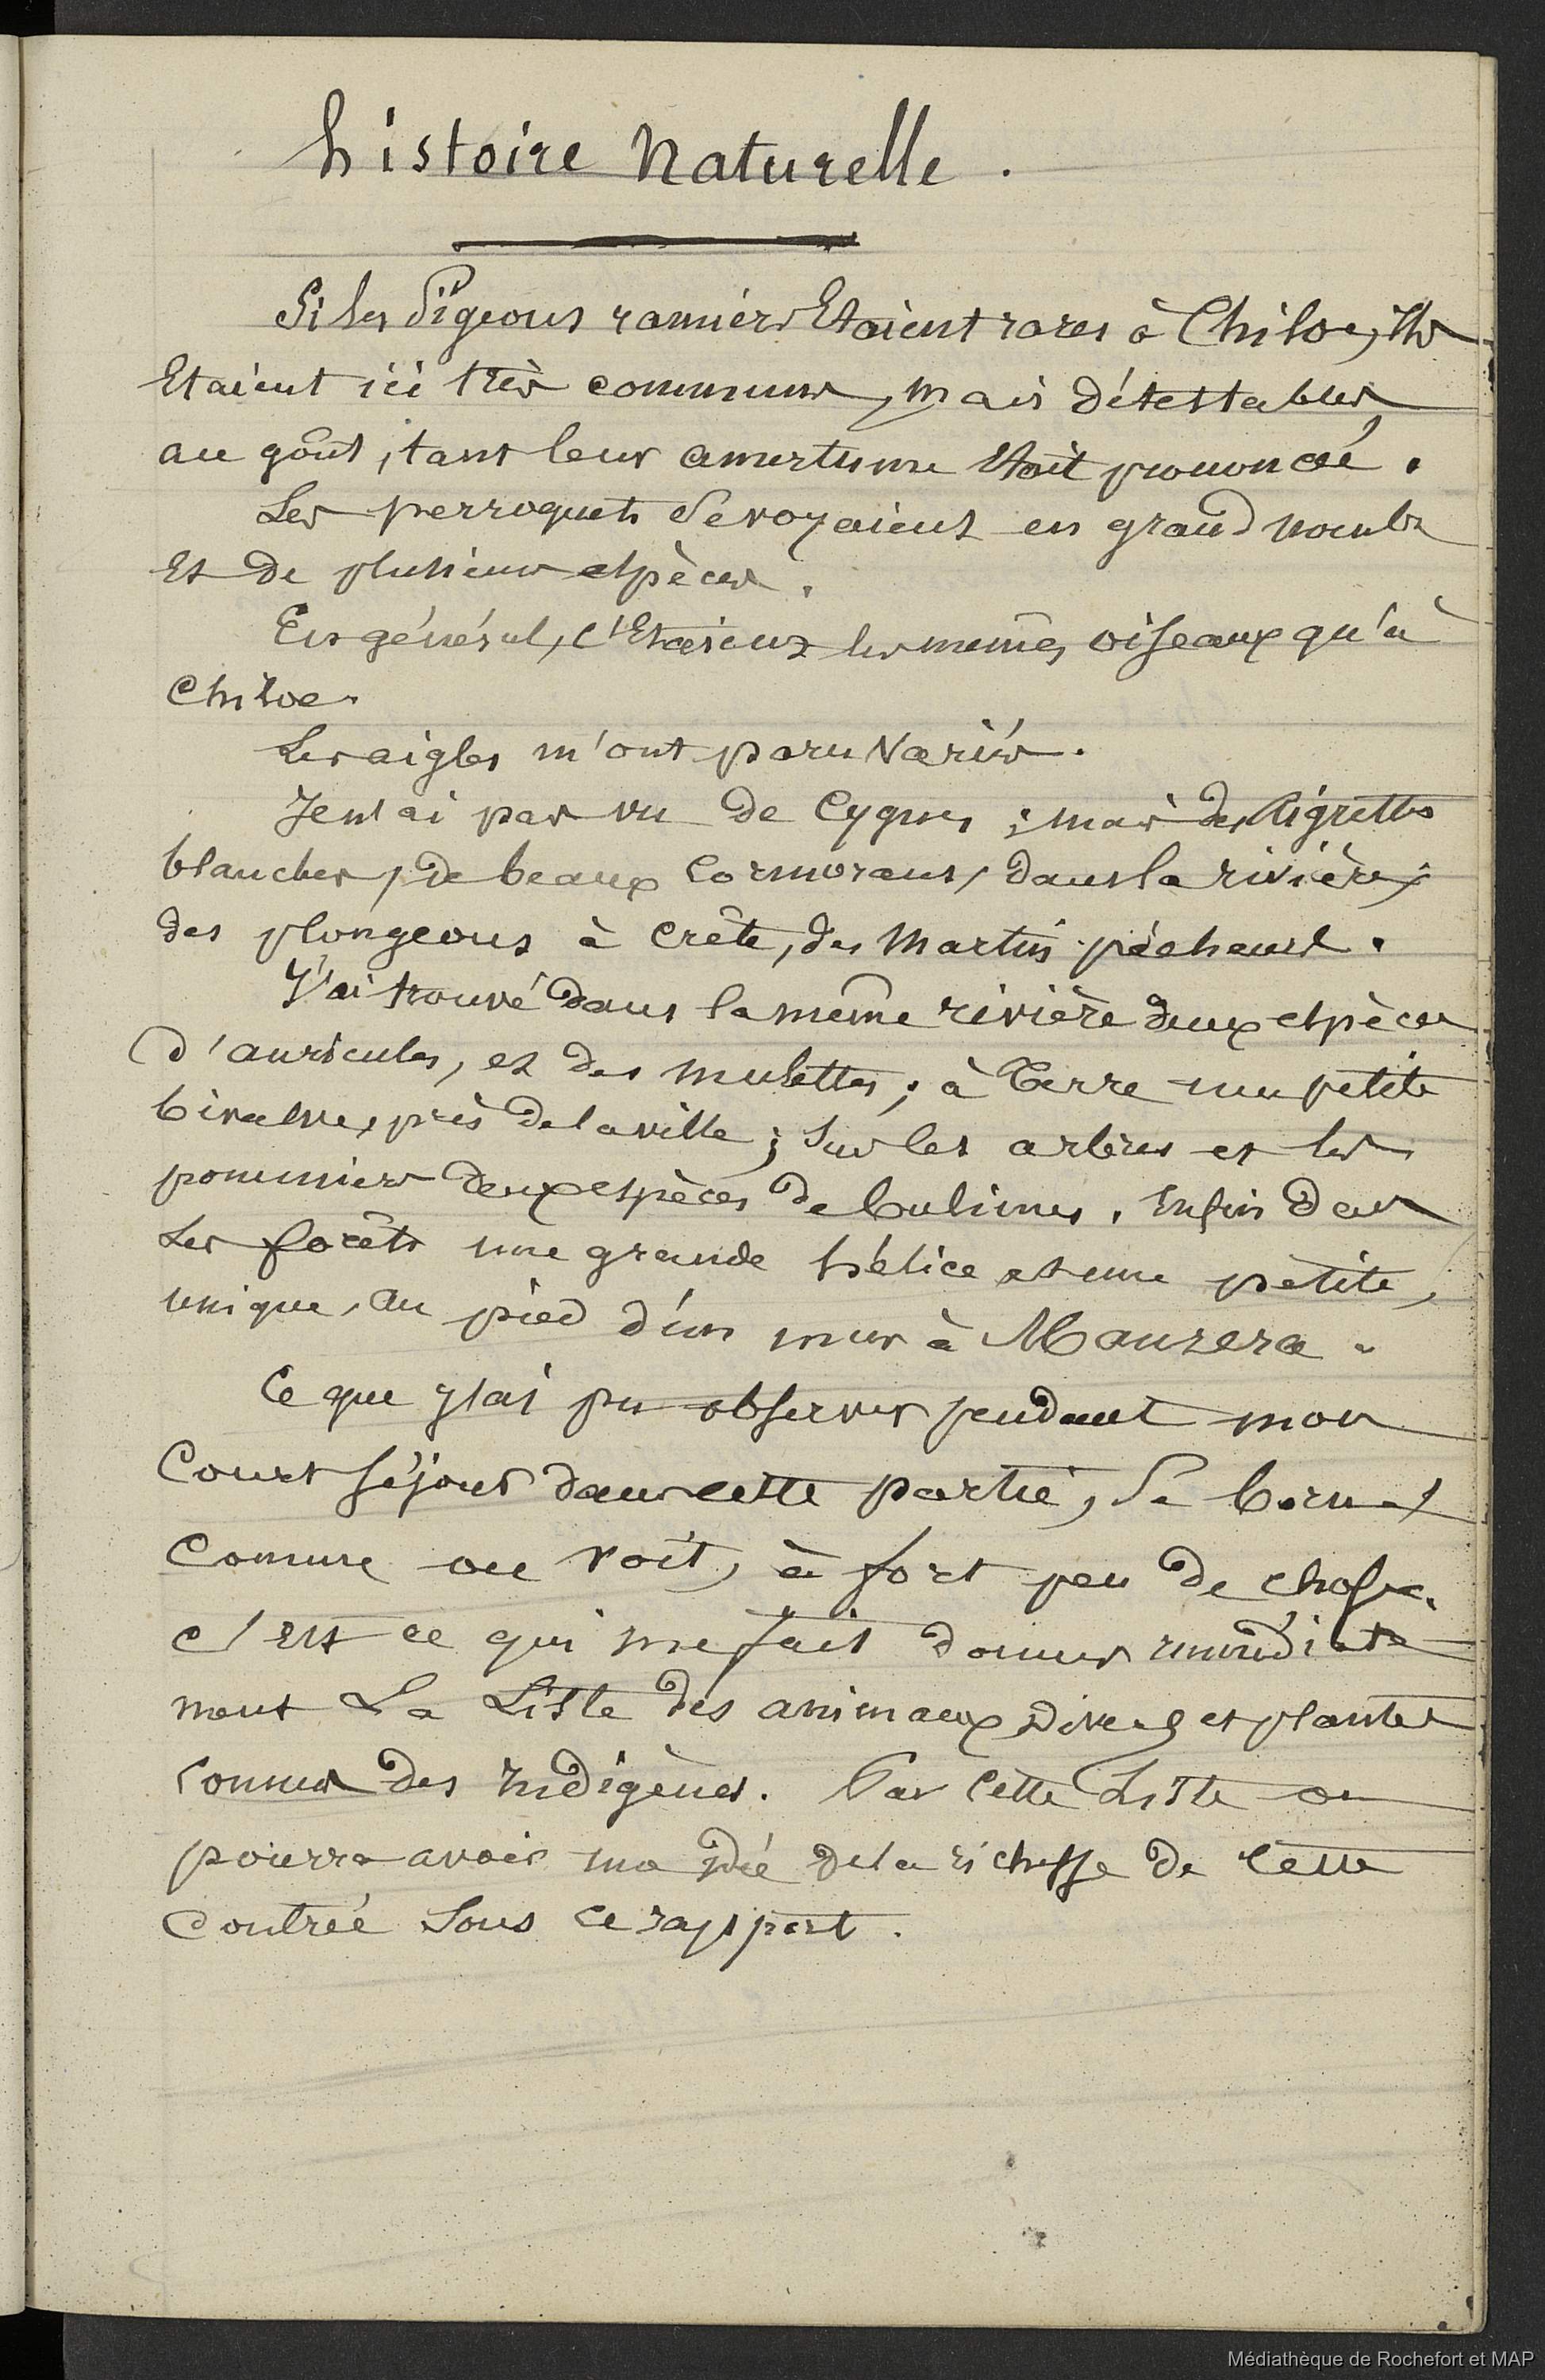 histoire Naturelle.
Si les Pigeons ramiers Etaient rares à Chiloe, ils
Etaient ici très communs, mais détestables
au goût, tant leur amertume était prononcé.
Les perroquets se voyaient en grand nombre
Et de plusieurs espèces.
En général, c'Etaient les mêmes oiseaux qu'à
Chiloe.
Les aigles m'ont paru Variés.
Je n'ai pas vu de Cygnes ; mais des Aigrettes
blanches, de beaux Cormorans, dans la rivière,
des plongeons à Crête, des Martin-pêcheurs.
J'ai trouvé dans la même rivière deux espèces
d'auricules, et des mulettes ; à Terre une petite
bivalve, près de la ville ; Sur les arbres et les
pommiers deux espèces de bulimes. Enfin dans
Les forêts une grande hélice et une petite,
unique, au pied d'un mur à Manzera.
Ce que j'ai pu observer pendant mon
Court séjour dans cette partie, Se borne,
Comme on voit, à fort peu de chose.
c'est ce qui me fait donner immédiate
ment La Liste des animaux divers et plantes
connus des Indigènes. Par Cette Liste on
pourra avoir une idée de la richesse de Cette
Contrée Sous ce rapport.
Médiathèque de Rochefort et MAP